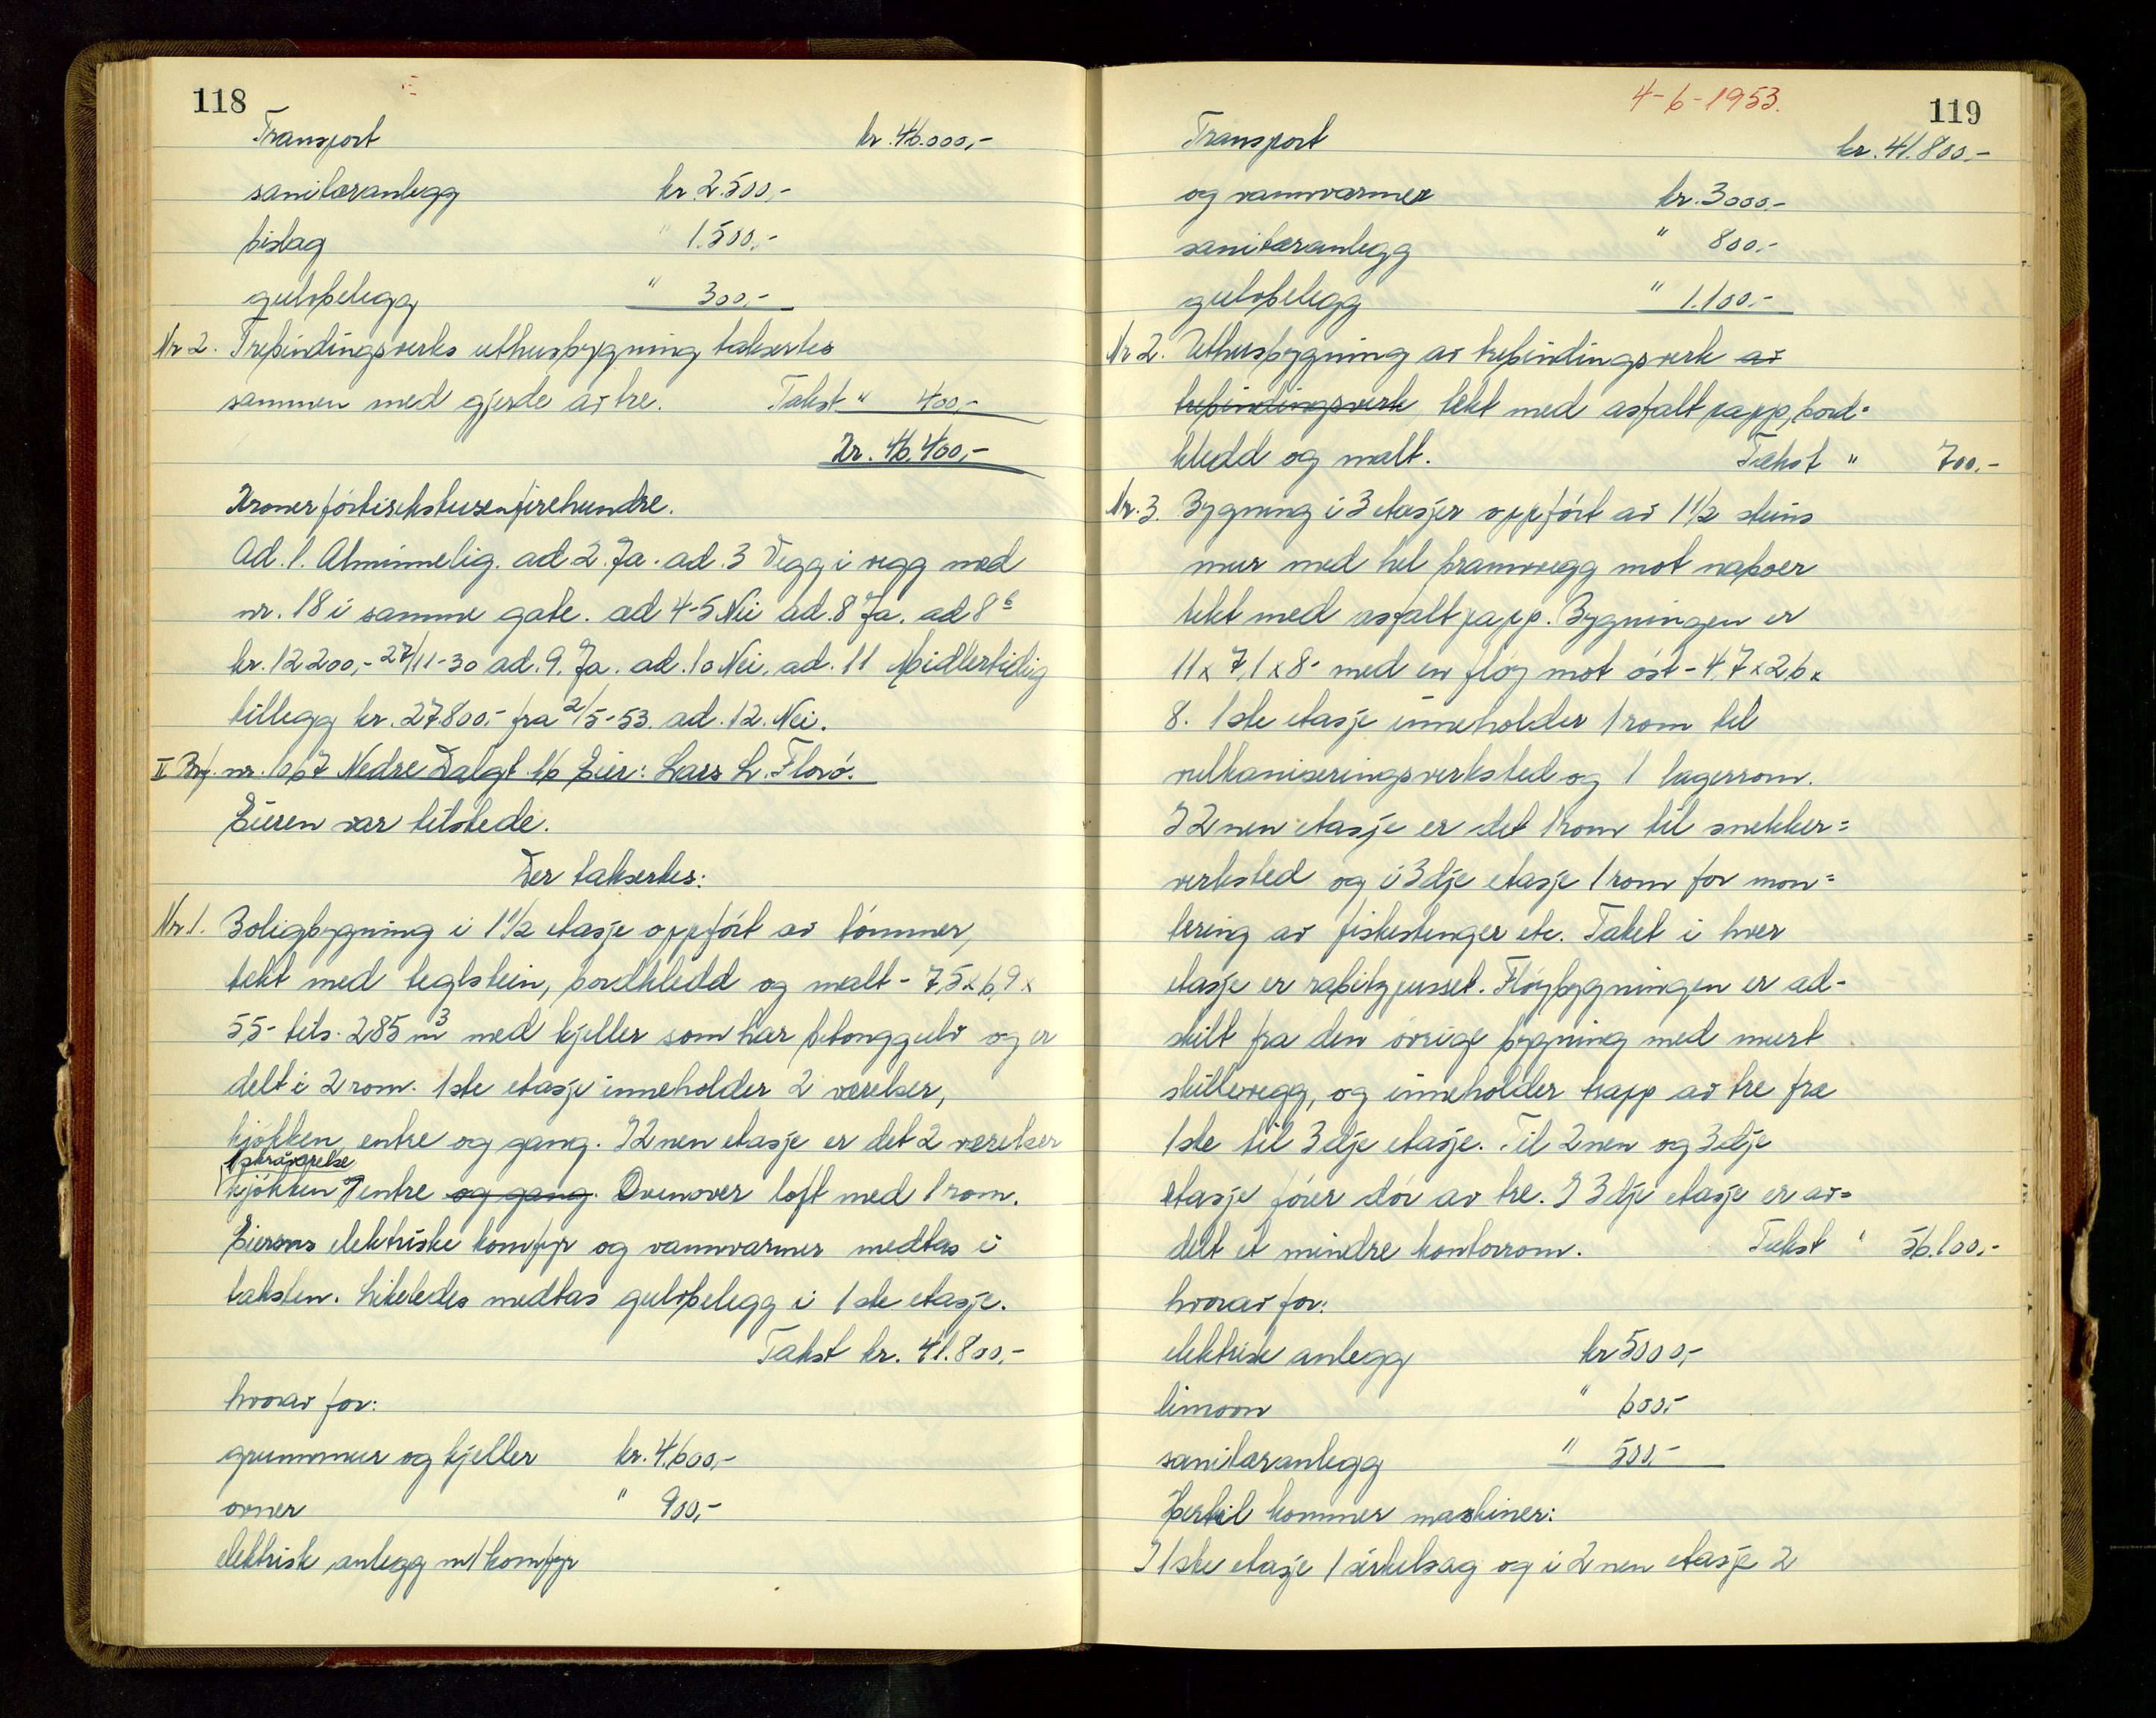 118
Transport kr. 46.000,-
sanitæranlegg kr. 2.500,-
bislag " 1.500,-
gulvbelegg " 300,-
Nr 2. Trebindingsverks uthusbygning takseres
sammen med gjerde av tre. Takst " 400,-
Kr. 46.400,-
Kroner førtisekstusenfirehundre.
Ad. 1. Alminnelig. ad. 2. Ja. ad. 3 Vegg i vegg med
nr. 18 i samme gate. ad 4-5 Nei ad. 8 Ja. ad 8 b
kr. 12200,- 27/11-30 ad. 9. Ja. ad. 10 Nei. ad. 11 Midlertidig
tillegg kr. 27.800,- fra 2/5-53. ad. 12. Nei.
II Brf. nr. 1067 Nedre Dalgt. 16 Eier: Lars L. Florø.
Eieren var tilstede.
Der taksertes:
Nr 1. Boligbygning i 1 1/2 etasje oppført av tømmer,
tekt med teglstein, bordkledd og malt - 7,5 x 6,9 x
5,5 - tils. 285 m3 med kjeller som har betonggulv og er
delt i 2 rom. 1ste etasje inneholder 2 værelser,
kjøkken, entre og gang. I 2nen etasje er det 2 værelser
1 skråværelse
kjøkken og entre og gang. Ovenover loft med 1 rom.
Eierens elektriske komfyr og vannvarmer medtas i
taksten. Likeledes medtas gulvbelegg i 1ste etasje.
Takst kr. 41.800,-
hvorav for:
grunnmur og kjeller kr. 4.600,-
ovner " 900,-
elektrisk anlegg m/ komfyr
4-6-1953.
119
Transport kr. 41.800,-
og vannvarmer kr. 3000,-
sanitæranlegg " 800,-
gulvbelegg " 1.100,-
Nr 2. Uthusbygning av trebindingsverk av
trebindingsverk, tekt med asfaltpapp, bord=
kledd og malt. Takst " 700,-
Nr. 3. Bygning i 3 etasjer oppført av 1 1/2 steins
mur med hel brannvegg mot naboer
tekt med asfaltpapp. Bygningen er
11 x 7,1 x 8 - med en fløy mot øst - 4,7 x 2,6 x
8. 1ste etasje inneholder 1 rom til
vulkaniseringsverksted og 1 lagerrom.
I 2nen etasje er det 1 rom til snekker=
verksted og i 3dje etasje 1 rom for mon=
tering av fiskestenger etc. Taket i hver
etasje er rabitzpusset. Fløybygningen er ad-
skilt fra den øvrige bygning med murt
skillevegg, og inneholder trapp av tre fra
1ste til 3dje etasje. Til 2nen og 3dje
etasje fører dør av tre. I 3dje etasje er av=
delt et mindre kontorrom. Takst " 56.100,-
hvorav for:
elektrisk anlegg kr 5000,-
limovn " 600,-
sanitæranlegg " 500,-
Hertil kommer maskiner:
I 1ste etasje 1 sirkelsag og i 2nen etasje 2